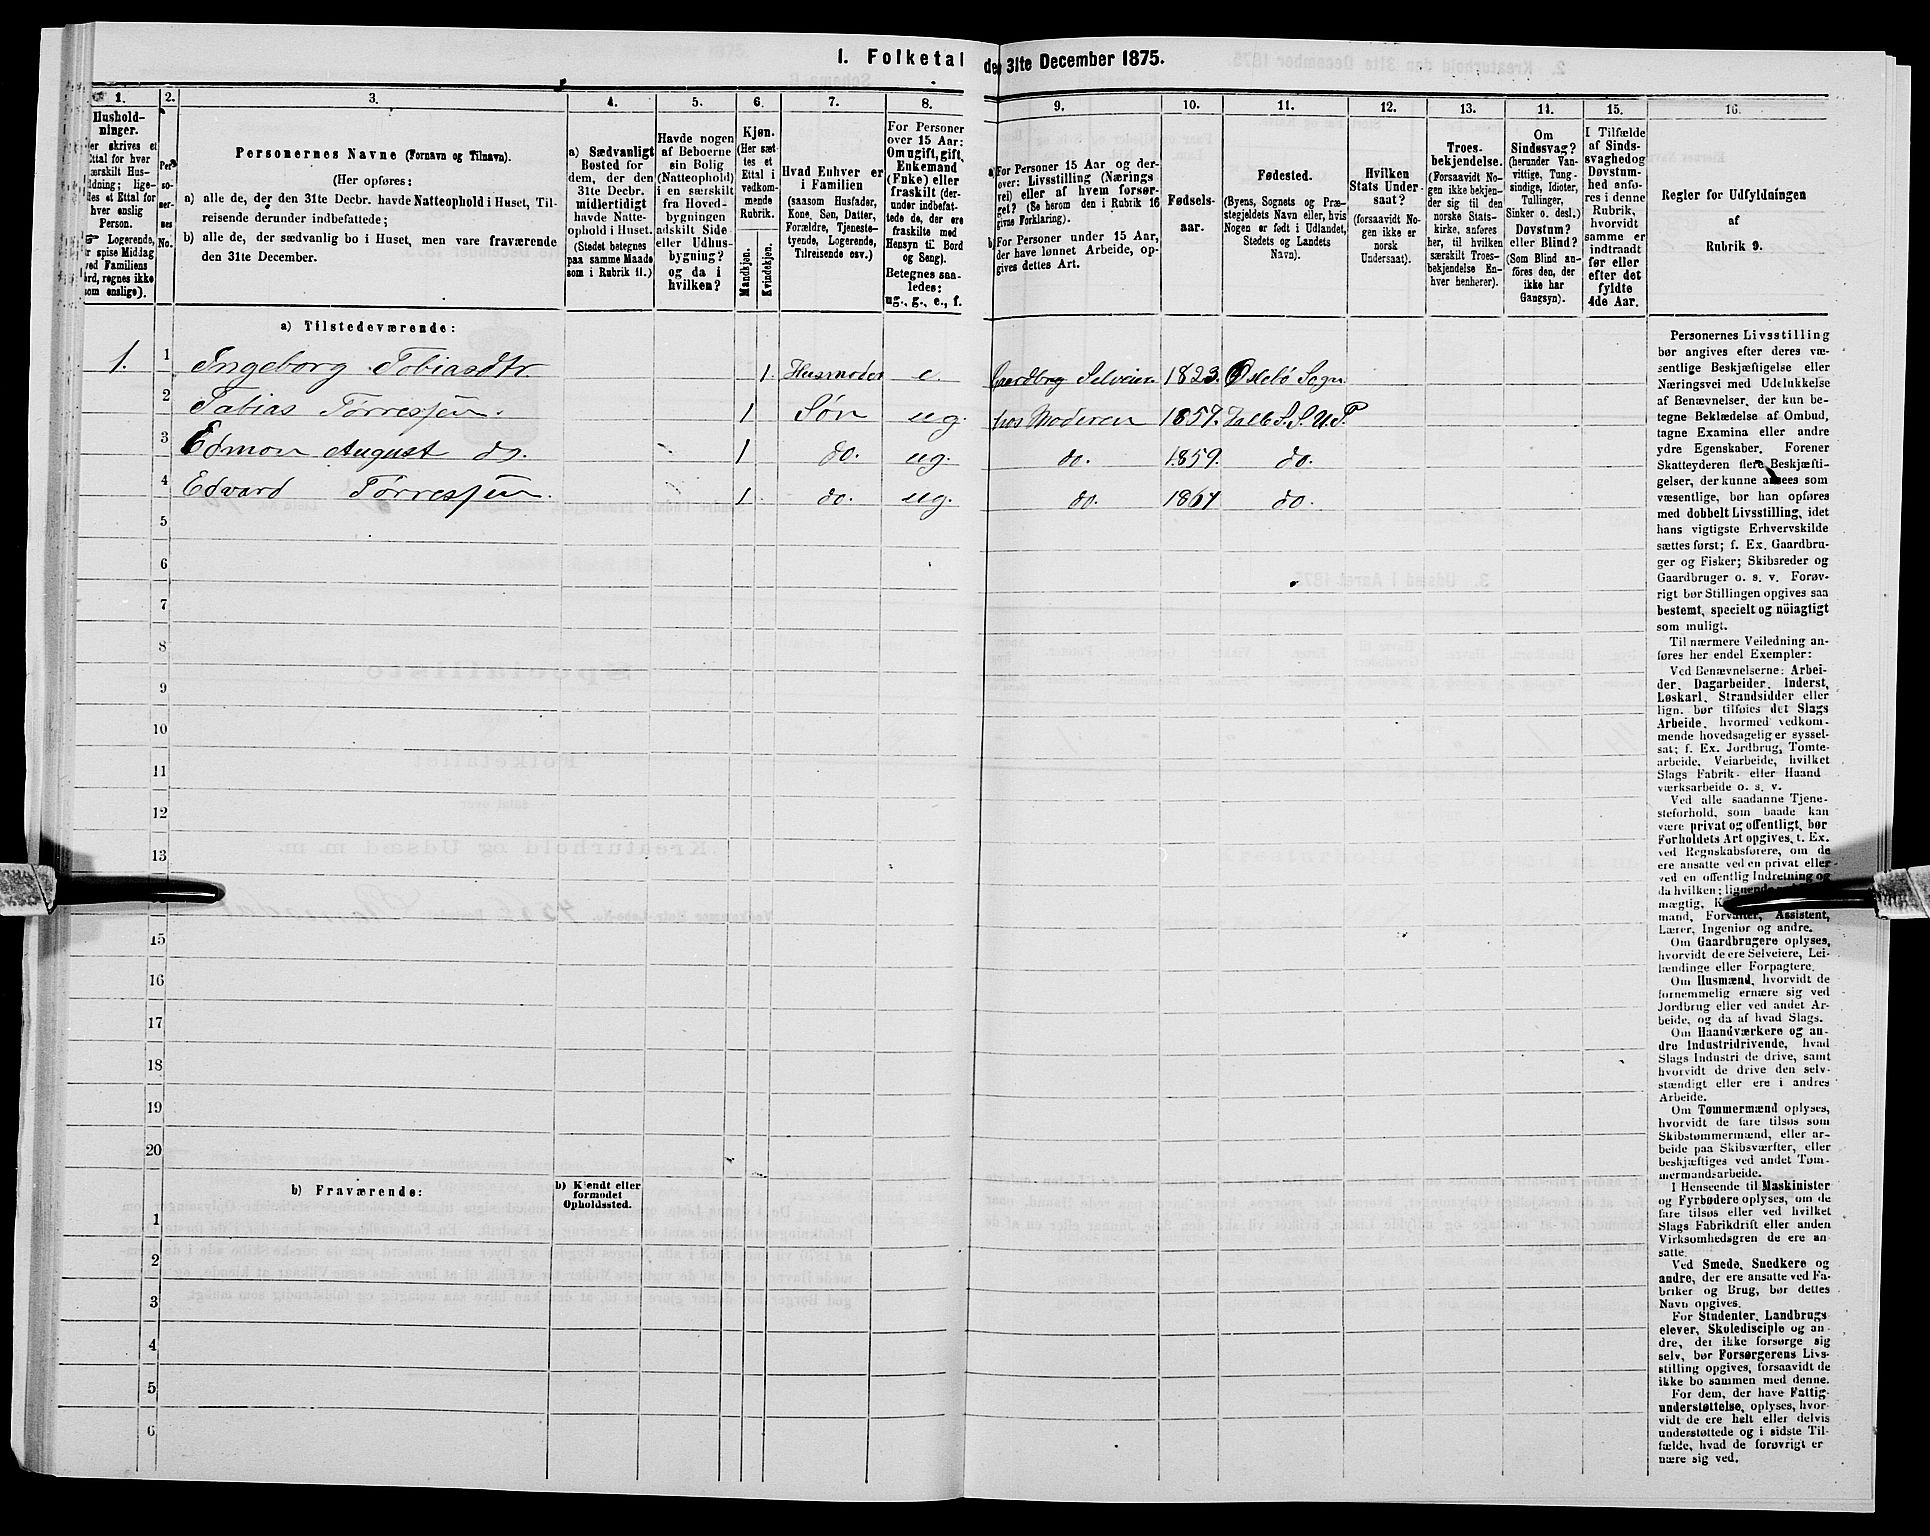 1. Folketal den 31te December 1875.
1.
2.
3.
4.
5.
6.
7.
8.
9.
10.
11.
12.
13.
14.
15.
16.
Personernes Navne (Fornavn og Tilnavn).
(Her opføres:
a) alle de, der den 31te Decbr. havde Natteophold i Huset, Tilreisende derunder indbefattede;
b) alle de, der sædvanlig bo i Huset, men vare fraværende den 31te December.
a) Sædvanligt
Bosted for
dem, der den
31te Decbr.
midlertidigt
havde Natte-
ophold i Huset.
(Stedet betegnes
paa samme Maade
som i Rubrik 11.)
Havde nogen
af Beboerne
sin Bolig
(Natteophold)
i en særskilt
fra Hoved-
bygningen
adskilt Side-
eller Udhus-
bygning?
og da i
hvilken?
Kjøn.
(Her sæt-
tes et
Ettal i
vedkom-
mende
Rubrik.
Mandkjøn.
Kvindekjøn.
Hvad Enhver er
i Familien
(saasom Husfader,
Kone, Søn, Datter,
Forældre, Tjeneste-
tyende, Logerende,
Tilreisende osv.)
For Personer
over 15 Aar:
Om ugift, gift,
Enkemand
(Enke) eller
fraskilt (der-
under indbefat-
tede de, der ere
fraskilte med
Hensyn til Bord
og Seng).
Betegnes saa-
ledes:
ug., g., e., f.
For Personer 15 Aar og der-
over: Livsstilling (Nærings-
vei) eller af hvem forsør-
get? (Se herom den i Rubrik 16
givne Forklaring).
For Personer under 15 Aar,
der have lønnet Arbeide, op-
gives dettes Art.
Fødsels-
aar.
Fødested.
(Byens, Sognets og Præ-
stegjeldets Navn eller, hvis
Nogen er født i Udlandet,
Stedets og Landets
Navn).
Hvilken
Stats Under-
saat?
(forsaavidt No-
gen ikke er
norsk
Undersaat).
Troes-
bekjendelse.
(Forsaavidt No-
gen ikke bekjen-
der sig til den
norske Stats-
kirke, anføres
her, til hvilken
særskilt Troes-
bekjendelse En-
hver henhører).
Om
Sindssvag?
(herunder Van-
vittige, Tung-
sindige, Idioter,
Tullinger,
Sinker o. desl.)
Døvstum?
eller Blind?
(Som Blind an-
føres den, der
ikke har
Gangsyn).
I Tilfælde
af Sinds-
svaghed og
Døvstum-
hed anfø-
res i denne
Rubrik,
hvorvidt
samme er
indtraadt
før eller
efter det
fyldte
4de Aar.
Regler for Udfyldningen
af
Rubrik 9.
a) Tilstedeværende:
1. 1 Ingeborg Tobiasdtr. 1. Husmoder e. Gaardbrug Selveier 1823. Sogn.
2 Tobias Torresen. 1 Søn ug hos Moderen 1857.
3 Edmon August do. 1 do. ug. do. 1859. do.
4 Edvard Tørresen. 1 do. ug. do. 1861 do.
5
6
7
8
9
10
11
12
13
15
16
17
18
19
20
b) Fraværende:
b) Kjendt eller
formodet
Opholdssted.
1
2
3
4
5
6
Personernes Livsstilling
bør angives efter deres væ-
sentlige Beskjæftigelse eller
Næringsvei med Udelukkelse
af Benævnelser, der kun be-
tegne Beklædelse af Ombud,
tagne Examina eller andre
ydre Egenskaber. Forener
Skatteyderen flere Beskjæfti-
gelser, der kunne ansees som
væsentlige, bør han opføres
med dobbelt Livsstilling, idet
hans vigtigste Erhvervskilde
sættes først; f. Ex. Gaardbru-
ger og Fisker; Skibsreder og
Gaardbruger o. s. v. Forøv-
rigt bør Stillingen opgives saa
bestemt, specielt og nøiagtigt
som muligt.
Til nærmere Veiledning an-
føres her endel Exempler:
Ved Benævnelserne: Arbei-
der, Dagarbeider, Inderst,
Løskarl, Strandsidder eller
lign. bør tilføies det Slags
Arbeide, hvormed vedkom-
mende hovedsagelig er syssel-
sat; f. Ex. Jordbrug, Tomte-
arbeide, Veiarbeide, hvilket
Slags Fabrik- eller Haand
værksarbeide o. s. v.
Ved alle saadanne Tjene-
steforhold, som baade kan
være privat og offentligt, bør
Forholdets Art opgives, t. Ex.
ved Regnskabsførere, om de
ere ansatte ved en privat eller
ved en offentlig Indretning og
da hvilken;
mægtig,
mand, Forvalter, Assistent,
Lærer, Ingeniør og andre.
Om Gaardbrugere oplyses,
hvorvidt de ere Selveiere, Lei-
lændinge eller Forpagtere.
Om Husmænd, hvorvidt de
fornemmelig ernære sig ved
Jordbrug eller ved andet Ar-
beide, og da af hvad Slags.
Om Haandværkere og an-
dre Industridrivende, hvad
Slags Industri de drive, samt
hvorvidt de drive den selv-
stændigt eller ere i andres
Arbeide.
Om Tømmermænd oplyses,
hvorvidt de fare tilsøs som
Skibstømmermænd, eller ar-
beide paa Skibsværfter, eller
beskjæftiges ved andet Tøm-
mermandsarbeide.
I Henseende til Maskinister
og Fyrbødere oplyses, om de
fare tilsøs eller ved hvilket
Slags Fabrikdrift eller anden
Virksomhedsgren de ere an
satte.
Ved Smede, Snedkere og
andre, der ere ansatte ved Fa-
briker og Brug, bør dettes
Navn opgives.
For Studenter, Landbrugs
elever, Skoledisciple og an-
dre, der ikke forsørge sig
selv, bør Forsørgerens Livs-
stilling opgives, forsaavidt de
ikke bo sammen med denne.
For dem, der have Fattig-
understøttelse, oplyses, hvor-
vidt de ere helt eller delvis
understøttede og i sidste Til-
fælde, hvad de forøvrigt er
nære sig ved.